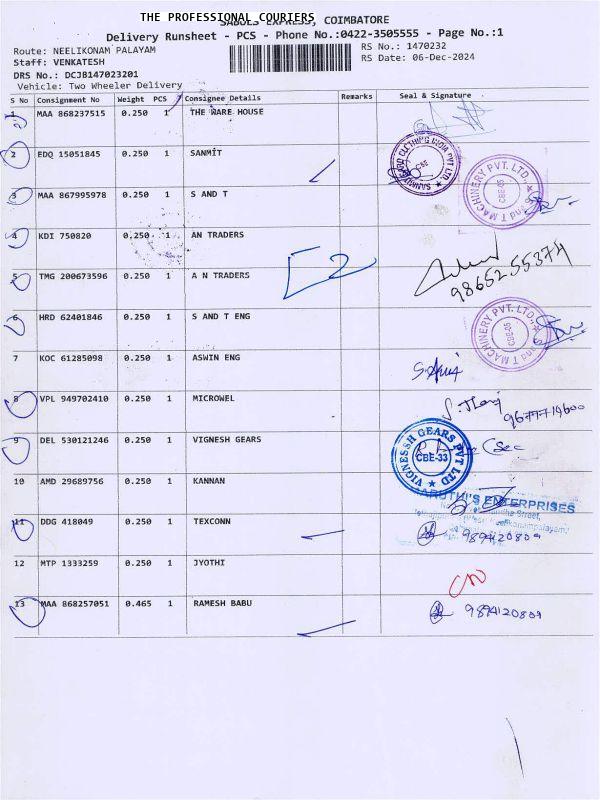 THE PROFESSIONAL COURIERS
EXPRESS, COIMBATORE
Delivery Runsheet - PCS - Phone No.:0422-3505555 - Page No.:1
Route: NEELIKONAM PALAYAM RS No.: 1470232
Staff: VENKATESH RS Date: 06-Dec-2024
DRS No.: DCJB147023201
Vehicle: Two Wheeler Delivery
S No Consignment No Weight PCS Consignee Details Remarks Seal & Signature
1 MAA 868237515 0.250 1 THE WARE HOUSE
2 EDQ 15051845 0.250 1 SANMIT
3 MAA 867995978 0.250 1 S AND T
4 KDI 750820 0.250 1 AN TRADERS
5 TMG 200673596 0.250 1 A N TRADERS
9865255374
6 HRD 62401846 0.250 1 S AND T ENG
S and T MACHINERY PVT. LTD. CBE-05
7 KOC 61285098 0.250 1 ASWIN ENG
8 VPL 949702410 0.250 1 MICROWEL
9677714600
9 DEL 530121246 0.250 1 VIGNESH GEARS
VIGNESSH GEARS PVT LTD CBE-33
10 AMD 29689756 0.250 1 KANNAN
ENTERPRISES
11 DDG 418049 0.250 1 TEXCONN
9894120809
12 MTP 1333259 0.250 1 JYOTHI
13 MAA 868257051 0.465 1 RAMESH BABU
9894120809